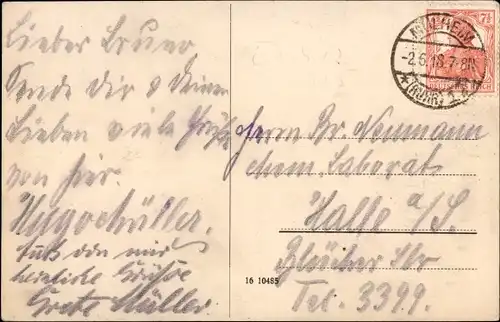 Lieber Bruno
Sende dir & deinen
Lieben viele Grüße
von hier.
Hugo Müller.
herzliche Grüße
Grete Müller.
16 10485
MÜLHEIM
-2.6.18.7-8N.
(RUHR) 1
7½
DEUTSCHES REICH
Herrn Br. Neumann
chem. Laborat
Halle a/S.
Blücher Str
Tel. 3399.